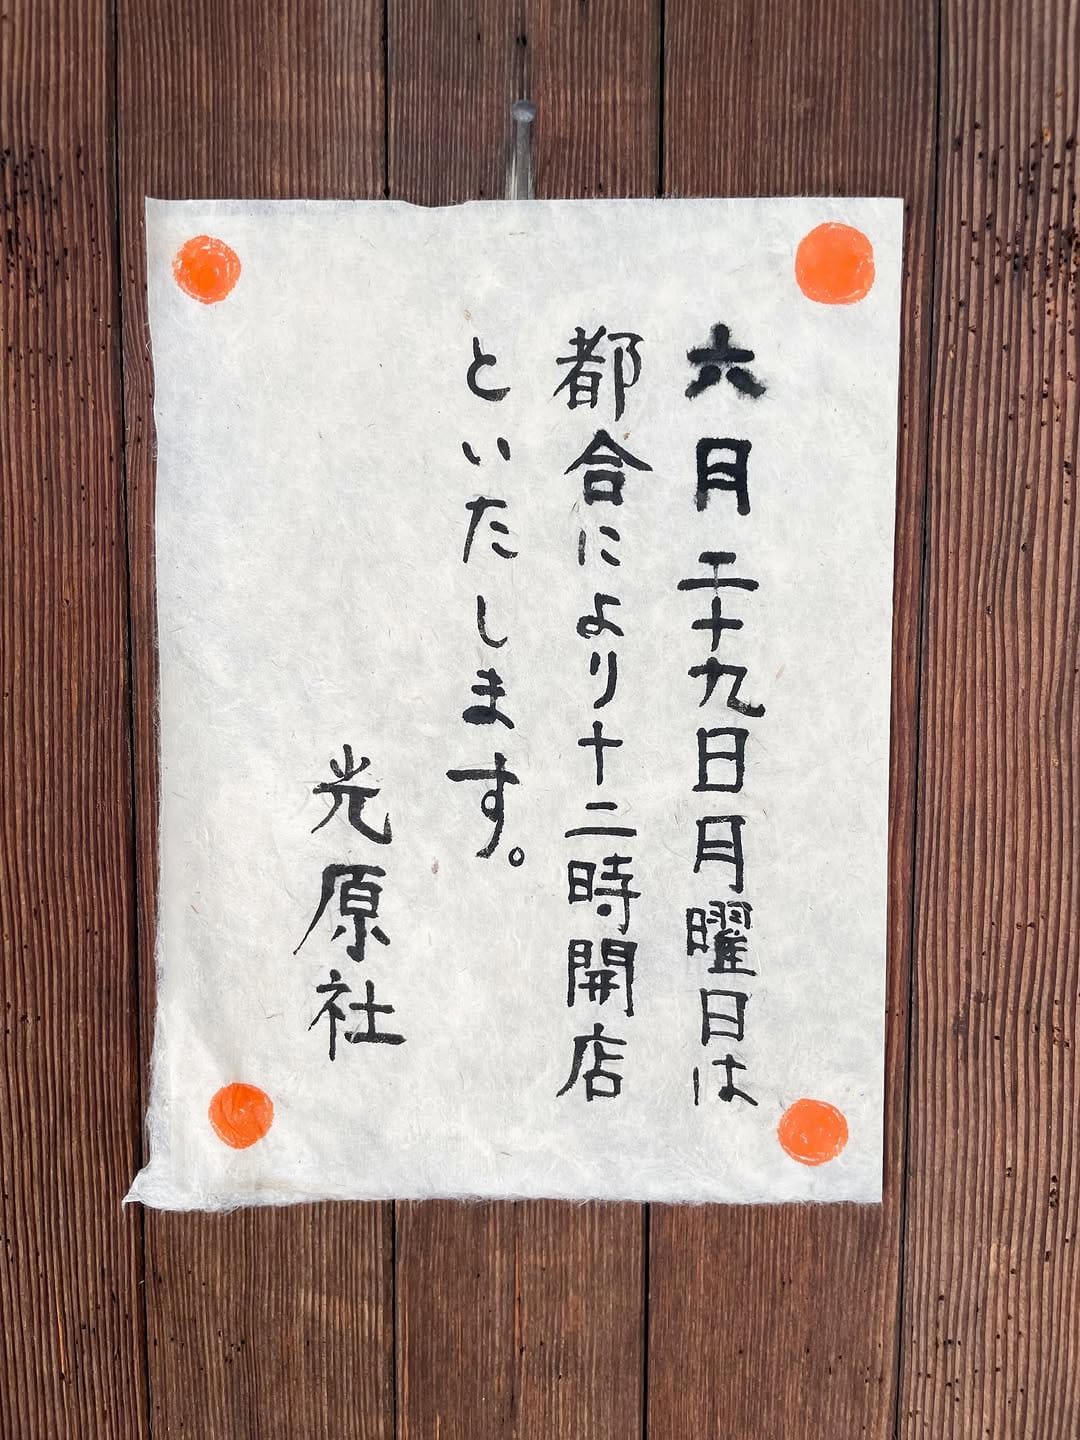 六月二十九日月曜日は
都合により十二時開店
といたします。
光原社